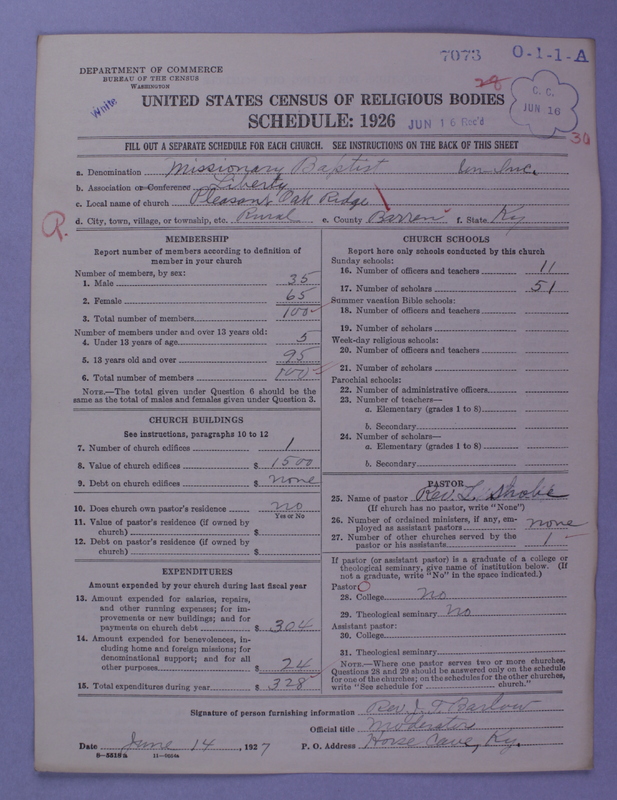 7073 O-1-1-A
DEPARTMENT OF COMMERCE
BUREAU OF THE CENSUS
WASHINGTON
White
28
C. C.
JUN 16
30
UNITED STATES CENSUS OF RELIGIOUS BODIES
SCHEDULE: 1926 JUN 16 Rec'd
FILL OUT A SEPARATE SCHEDULE FOR EACH CHURCH. SEE INSTRUCTIONS ON THE BACK OF THIS SHEET
a. Denomination Missionary Baptist Inc.
b. Association or Conference Liberty
c. Local name of church Pleasant Oak Ridge
d. City, town, village, or township, etc. Rural e. County Barren f. State Ky
MEMBERSHIP
Report number of members according to definition of
member in your church
Number of members, by sex:
1. Male 35
2. Female 65
3. Total number of members 100
Number of members under and over 13 years old:
4. Under 13 years of age 5
5. 13 years old and over 95
6. Total number of members 100
NOTE.—The total given under Question 6 should be the
same as the total of males and females given under Question 3.
CHURCH BUILDINGS
See instructions, paragraphs 10 to 12
7. Number of church edifices 1
8. Value of church edifices $ 1500
9. Debt on church edifices $ none
10. Does church own pastor's residence no
Yes or No
11. Value of pastor's residence (if owned by
church) $
12. Debt on pastor's residence (if owned by
church) $
EXPENDITURES
Amount expended by your church during last fiscal year
13. Amount expended for salaries, repairs,
and other running expenses; for im-
provements or new buildings; and for
payments on church debt $ 304
14. Amount expended for benevolences, in-
cluding home and foreign missions; for
denominational support; and for all
other purposes $ 24
15. Total expenditures during year $ 328
CHURCH SCHOOLS
Report here only schools conducted by this church
Sunday schools:
16. Number of officers and teachers 11
17. Number of scholars 51
Summer vacation Bible schools:
18. Number of officers and teachers
19. Number of scholars
Week-day religious schools:
20. Number of officers and teachers
21. Number of scholars
Parochial schools:
22. Number of administrative officers
23. Number of teachers—
a. Elementary (grades 1 to 8)
b. Secondary
24. Number of scholars—
a. Elementary (grades 1 to 8)
b. Secondary
PASTOR
25. Name of pastor Rev. L.
(If church has no pastor, write "None")
26. Number of ordained ministers, if any, em-
ployed as assistant pastors none
27. Number of other churches served by the
pastor or his assistants 1
If pastor (or assistant pastor) is a graduate of a college or
theological seminary, give name of institution below. (If
not a graduate, write "No" in the space indicated.)
Pastor:
28. College no
29. Theological seminary no
Assistant pastor:
30. College
31. Theological seminary
NOTE.—Where one pastor serves two or more churches,
Questions 28 and 29 should be answered only on the schedule
for one of the churches; on the schedules for the other churches,
write "See schedule for church."
Signature of person furnishing information Rev. J. T. Barlow
Official title Moderator
Date June 14, 1927 P. O. Address Horse Cave, Ky.